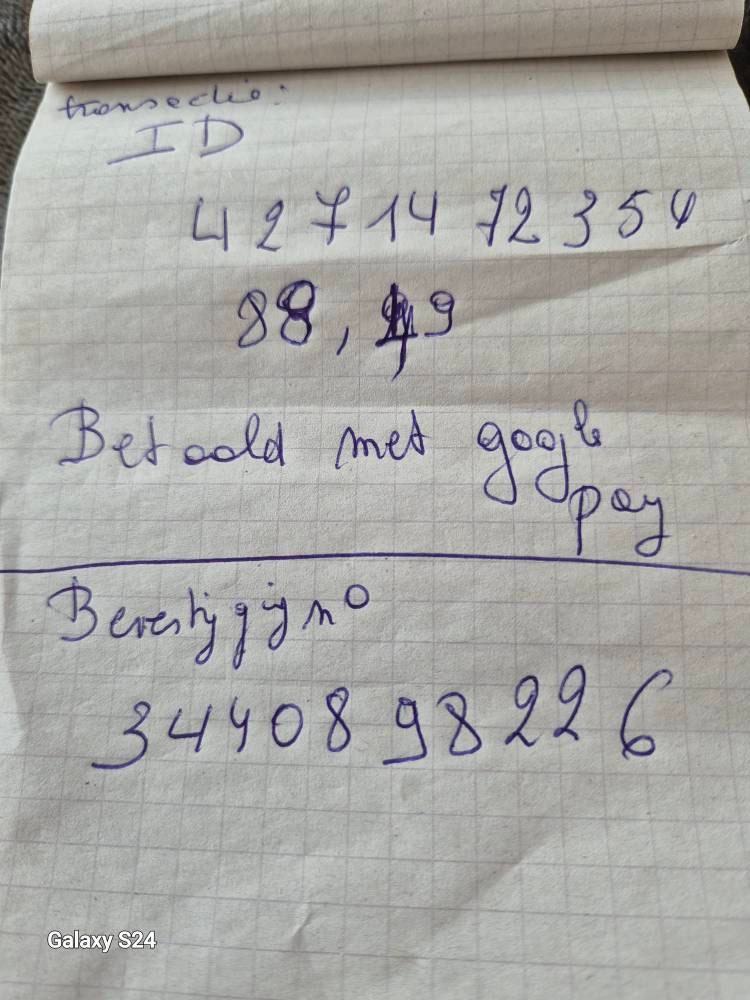 transactie:
ID
42714 72354
88, 49
Betaald met google
pay
Bevestigging n°
34408 98226
Galaxy S24